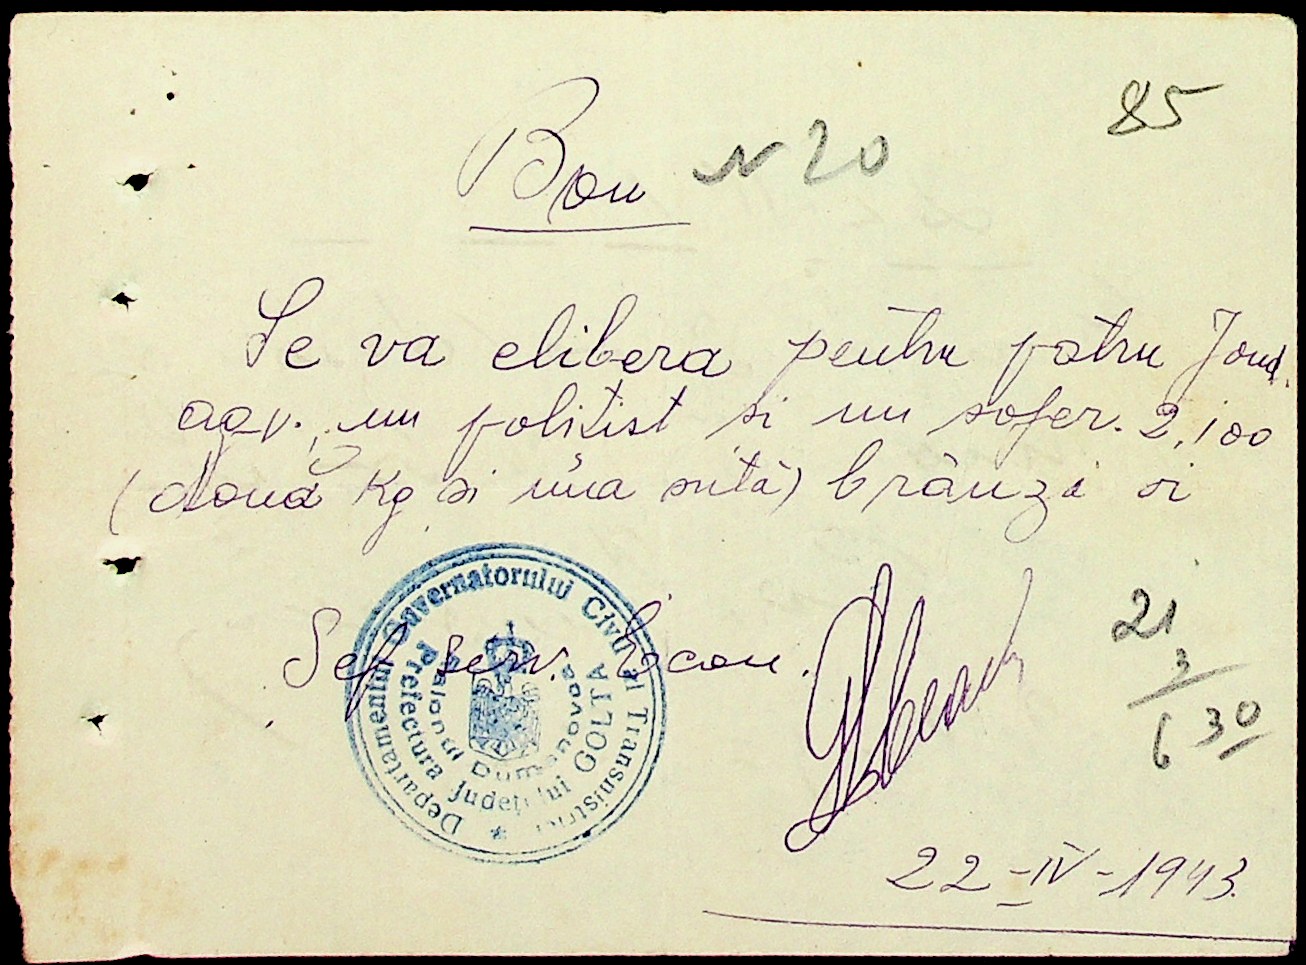 85
Bon N 20
Se va elibera pentru patru Jand.
agv. un politist si un sofer. 2,100
(două kg si una sută) brânză si
Sef serv. Econ.
Departamentul Guvernatorului Civil al Transnistriei
Prefectura Județului GOLTA
Raionul Dumanovca
21
3
6 30
22-IV-1943.